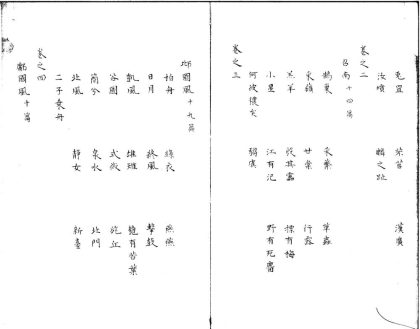 兎罝 芣苢 漢廣
汝墳 麟之趾
卷之二
召南十四篇
鵲巢 采蘩 草蟲
采蘋 甘棠 行露
羔羊 殷其靁 摽有梅
小星 江有汜 野有死麕
何彼穠矣 騶虞
卷之三
邶國風十九篇
柏舟 綠衣 燕燕
日月 終風 擊鼓
凱風 雄雉 匏有苦葉
谷風 式微 旄丘
簡兮 泉水 北門
北風 靜女 新臺
二子乘舟
卷之四
鄘國風十篇